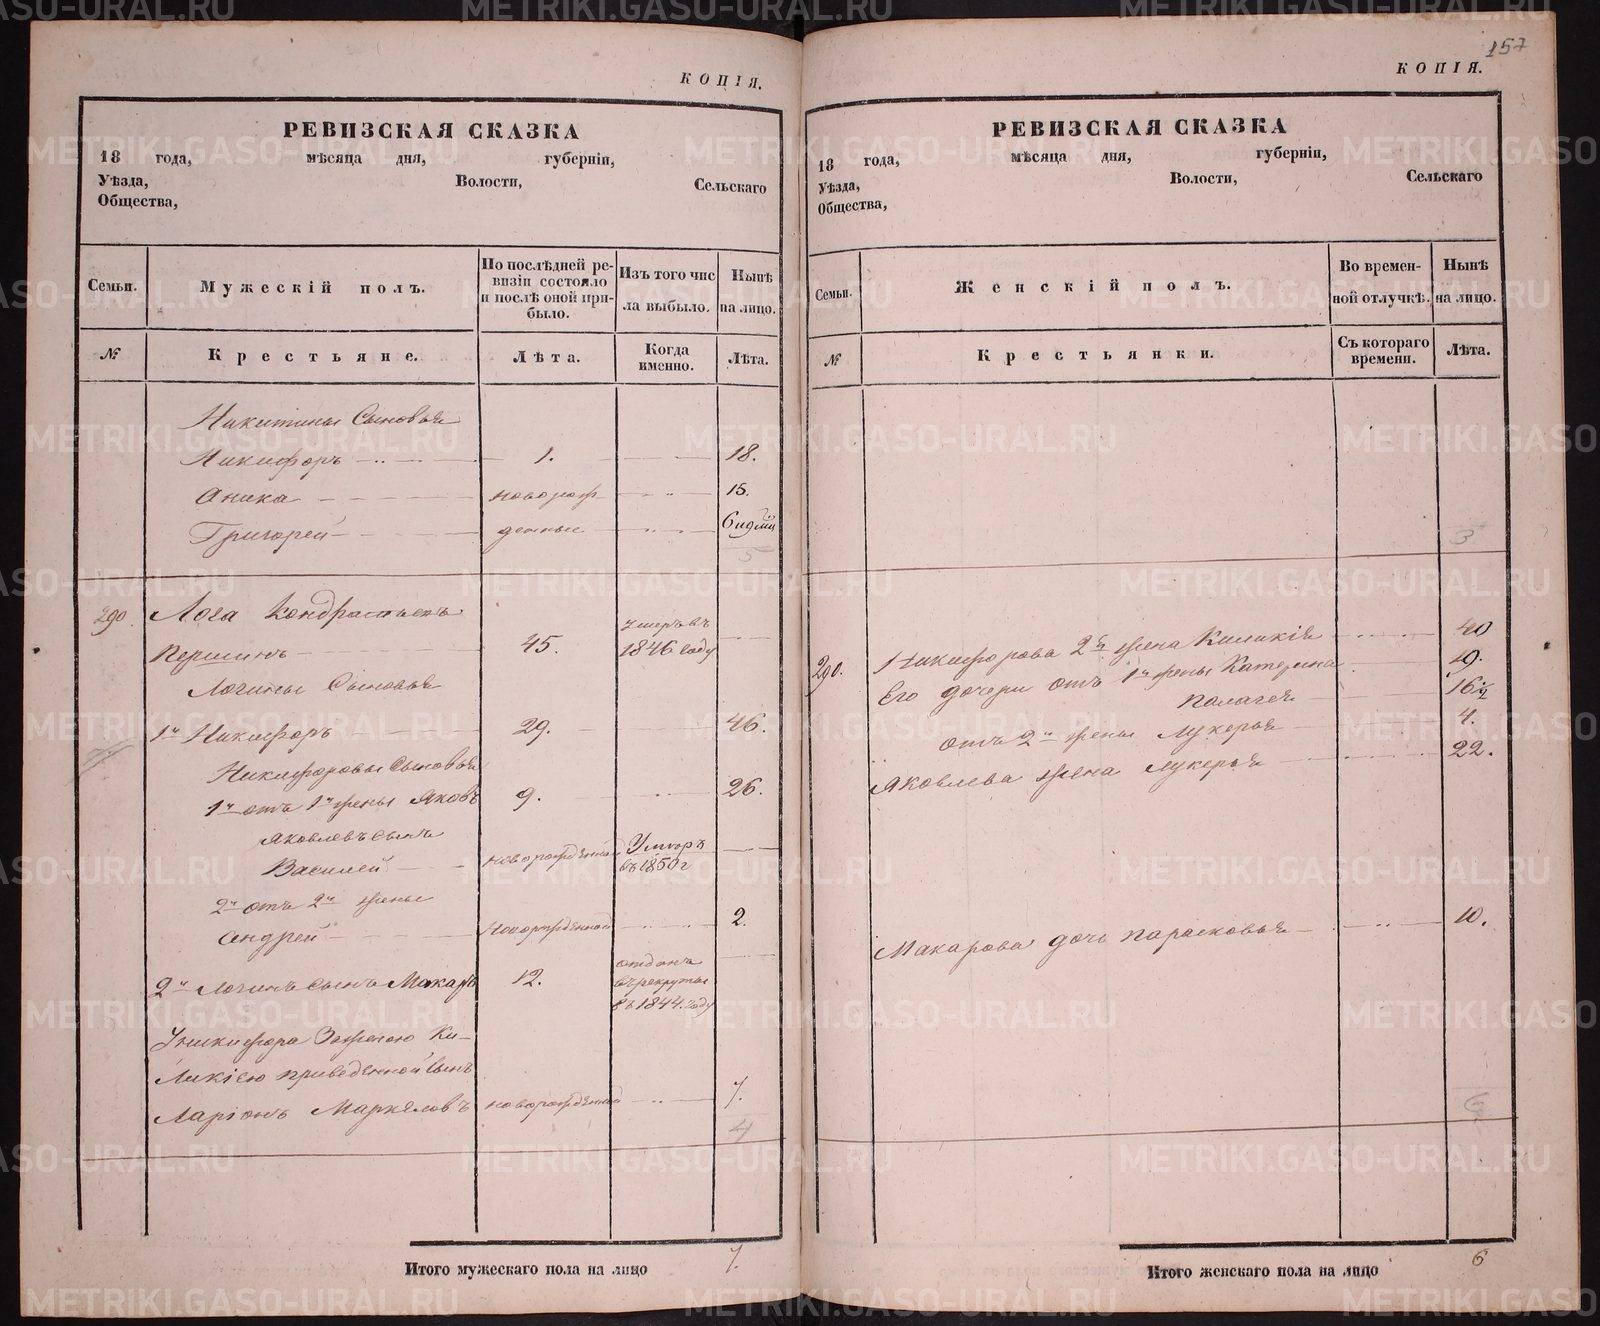 КОПІЯ.
РЕВИЗСКАЯ СКАЗКА
18 года, мѣсяца дня, губерніи,
Уѣзда, Волости, Сельскаго
Общества,
Семьи. Мужескій полъ. По послѣдней ре-визіи состояло и послѣ оной при-было. Изъ того чис ла выбыло. Нынѣ на лицо.
№ Крестьяне. Лѣта. Когда именно. Лѣта.
Никитины Сыновья
Никифоръ 1. 18.
Аника новорож 15.
Григорей денные 6 идмц
5
290. Лога Кондратьевъ умеръ въ
Першинъ 45. 1846 году
Логины Сыновья
1й Никифоръ 29. 46.
Никифоровы Сыновья
1й отъ 1й жены Яковъ 9. 26.
Яковлевъ сынъ
Василей новорожденной Умеръ въ 1850 г
2й отъ 2й жены
Андрей Новорожденной 2.
2й Логинъ сынъ Макаръ 12. отданъ въ рекруты въ 1844. году
У Никифора Заженою Ки-
ликіею приведенной сынъ
Ларіонъ Маркеловъ новорожденной 7.
4
Итого мужескаго пола на лицо 7.
157
КОПІЯ.
РЕВИЗСКАЯ СКАЗКА
18 года, мѣсяца дня, губерніи,
Уѣзда, Волости, Сельскаго
Общества,
Семьи. Женскій полъ. Во времен-ной отлучкѣ. Нынѣ на лицо.
№ Крестьянки. Съ котораго времени. Лѣта.
3
290. Никифорова 2я жена Киликія 40
Его дочери отъ 1й жены Катерина 19.
Палагея 16 1/2
отъ 2й жены Лукерья 4.
Яковлева жена Лукерья 22.
Макарова дочь Парасковья 10.
6
Итого женскаго пола на лицо 6
METRIKI.GASO-URAL.RU